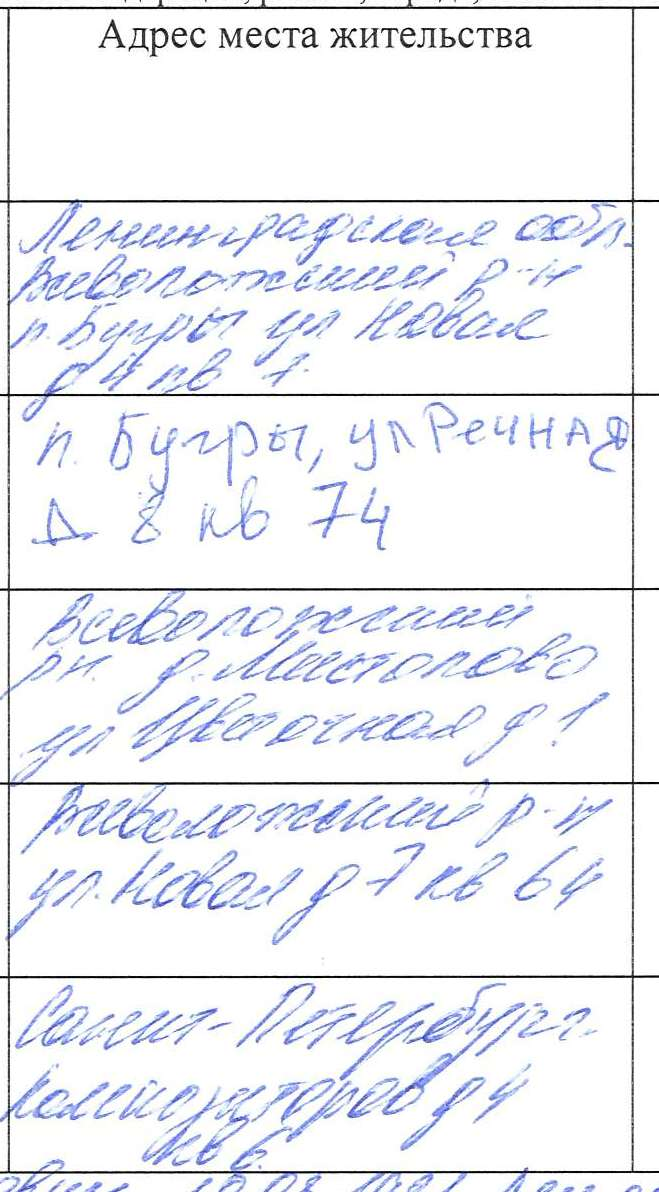 Адрес места жительства
Ленинградская обл.
Всеволожский р-н
п. Бугры ул Новая
д 4 кв 7
п. Бугры, ул Речная
д 8 кв 74
Всеволожский
рн. д. Мистолово
ул Цветочная д 1
Всеволожский р-н
ул. Новая д 7 кв 64
Санкт-Петербург
Композиторов д 4
кв 6